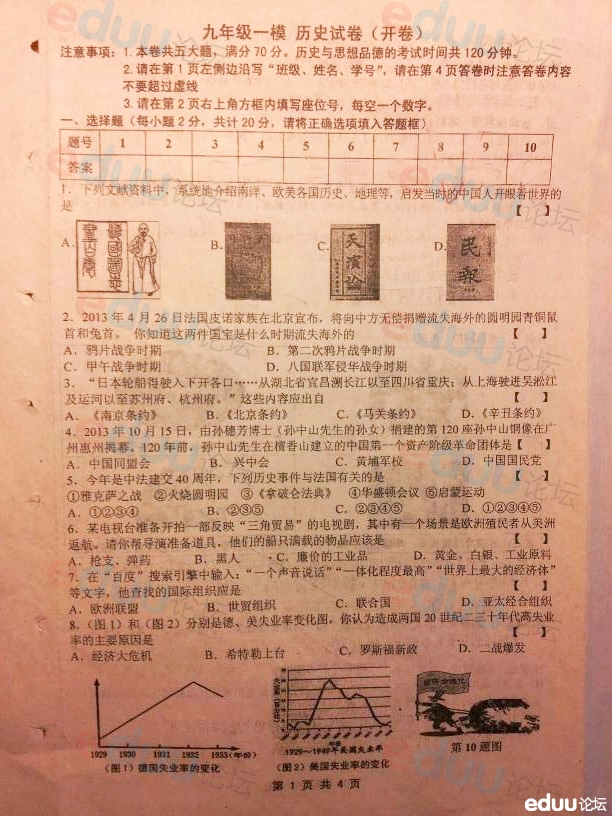 九年级一模 历史试卷（开卷）
注意事项：1. 本卷共五大题，满分 70 分。历史与思想品德的考试时间共 120 分钟。
2. 请在第 1 页左侧边沿写“班级、姓名、学号”，请在第 4 页答卷时注意答卷内容
不要超过虚线
3. 请在第 2 页右上角方框内填写座位号，每空一个数字。
一、选择题（每小题 2 分，共计 20 分，请将正确选项填入答题框）
题号 1 2 3 4 5 6 7 8 9 10
答案
1．下列文献资料中，系统地介绍南洋、欧美各国历史、地理等，启发当时的中国人开眼看世界的
是 【 】
A. B. C. D.
天演论 民报
2．2013 年 4 月 26 日法国皮诺家族在北京宣布，将向中方无偿捐赠流失海外的圆明园青铜鼠
首和兔首。 你知道这两件国宝是什么时期流失海外的 【 】
A．鸦片战争时期 B．第二次鸦片战争时期
C．甲午战争时期 D．八国联军侵华战争时期
3．“日本轮船得驶入下开各口……从湖北省宜昌溯长江以至四川省重庆；从上海驶进吴淞江
及运河以至苏州府、杭州府。”这些内容应出自 【 】
A．《南京条约》 B．《北京条约》 C．《马关条约》 D．《辛丑条约》
4．2013 年 10 月 15 日，由孙穗芳博士（孙中山先生的孙女）捐建的第 120 座孙中山铜像在广
州惠州揭幕。120 年前，孙中山先生在檀香山建立的中国第一个资产阶级革命团体是【 】
A．中国同盟会 B．兴中会 C．黄埔军校 D．中国国民党
5．今年是中法建交 40 周年，下列历史事件与法国有关的是 【 】
①雅克萨之战 ②火烧圆明园 ③《拿破仑法典》 ④华盛顿会议 ⑤启蒙运动
A．①②③④ B．②③⑤ C．②③④⑤ D．①②④⑤
6．某电视台准备开拍一部反映“三角贸易”的电视剧，其中有一个场景是欧洲殖民者从美洲
返航。请你帮导演准备道具，他们的船只满载的物品应该是 【 】
A．枪支、弹药 B．黑人 C．廉价的工业品 D．黄金、白银、工业原料
7．在“百度”搜索引擎中输入：“一个声音说话”“一体化程度最高”“世界上最大的经济体”
等文字，他查找的国际组织应是 【 】
A．欧洲联盟 B．世贸组织 C．联合国 D．亚太经合组织
8．（图 1）和（图 2）分别是德、美失业率变化图，你认为造成两国 20 世纪二三十年代高失业
率的主要原因是 【 】
A．经济大危机 B．希特勒上台 C．罗斯福新政 D．二战爆发
1929 1930 1931 1932 1933(年份)
（图 1）德国失业率的变化
1929～1949年美国失业率
（图 2）美国失业率的变化
经济全球化
第 10 题图
第 1 页 共 4 页
eduu论坛